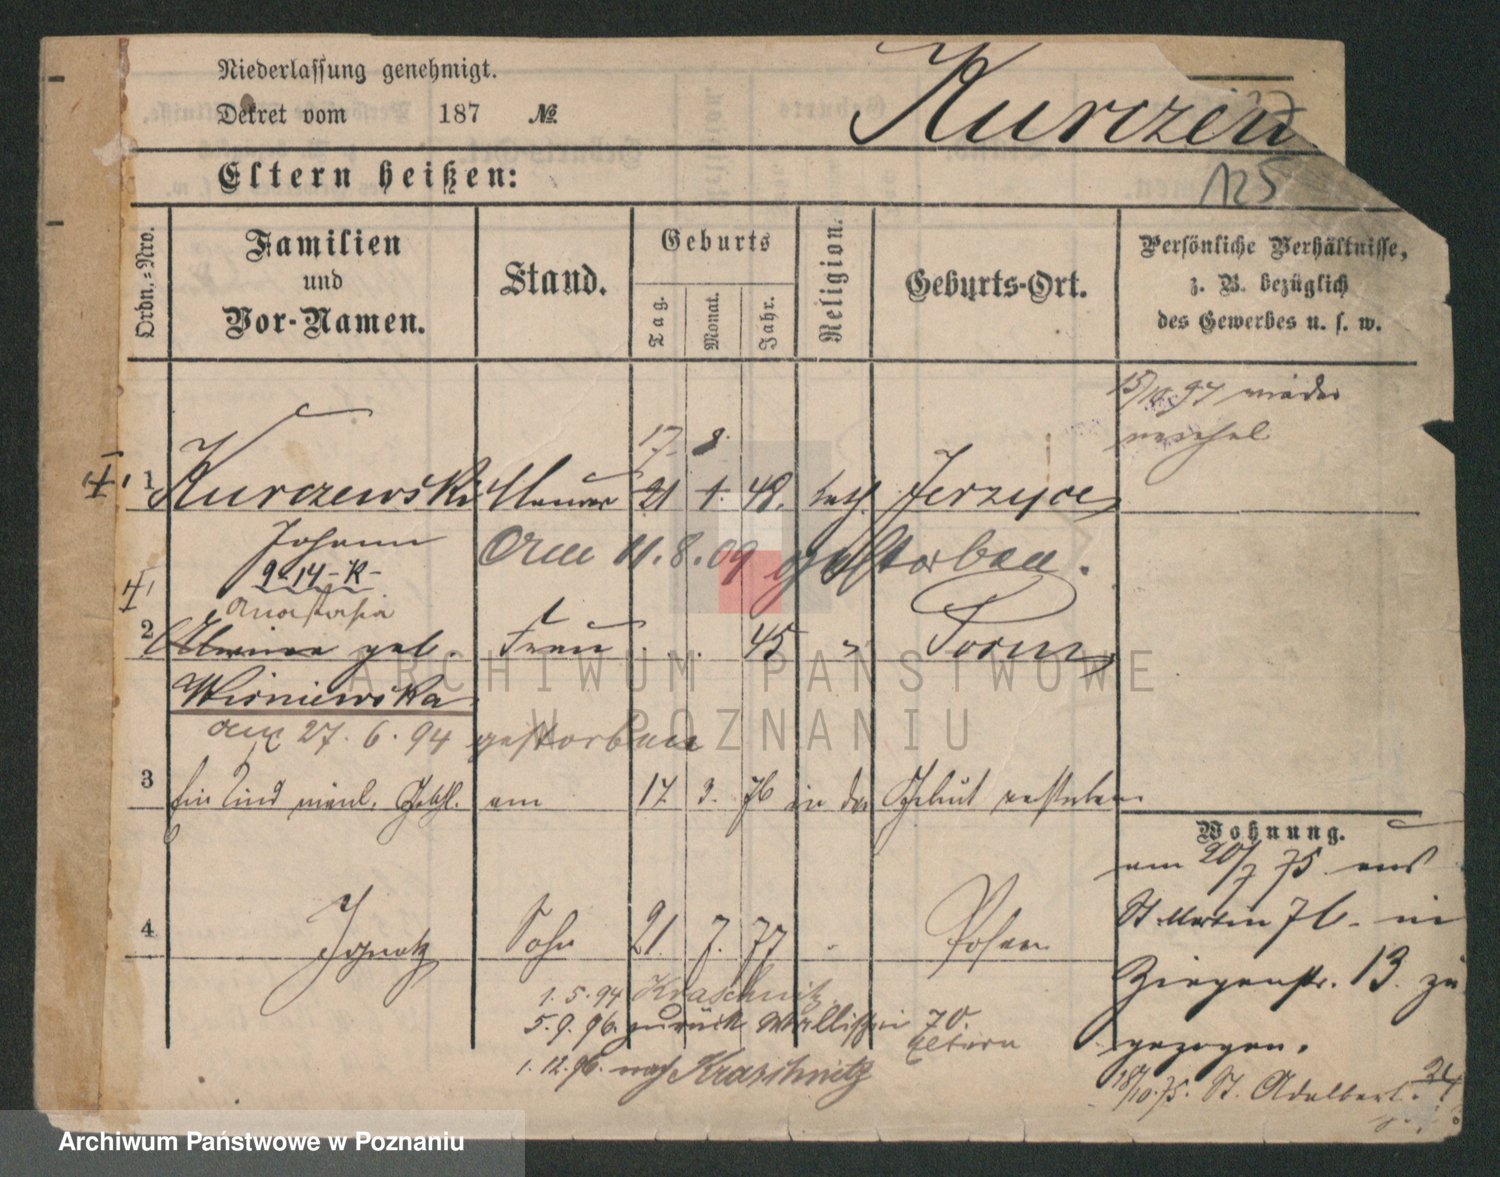 Niederlassung genehmigt.
Dekret vom 187 №
Kurczew
125
Eltern heißen:
Ordn.-Nro.
Familien
und
Vor-Namen.
Stand.
Geburts
Tag.
Monat.
Jahr.
Religion.
Geburts-Ort.
Persönliche Verhältnisse,
z. B. bezüglich
des Gewerbes u. s. w.
97 wieder
17. 8.
1 Kurczewski Maurer 21 1. 48. kath. Jerzyce
Johann
Am 11.8.09 gestorben.
9-14-K-
Anastasia
2 geb. Frau 45 " Posen
Wiśniewska
am 27.6.94 gestorben
3 Ein Kind männl. Geschl. am 17 3. 76 in der Geburt verstorben
Wohnung.
am 20/7 75 aus
St Martin 76 in
Ziegenstr. 13. zu
gezogen.
18/10.75. St. Adalbert. 24
4 Ignatz Sohn 21. 7. 77 Posen
1.5.94 Kraschnitz
5.9.96. zurück Wallischei 70.
Eltern
1.12.96. nach Kraschnitz
ARCHIWUM PAŃSTWOWE
W POZNANIU
Archiwum Państwowe w Poznaniu